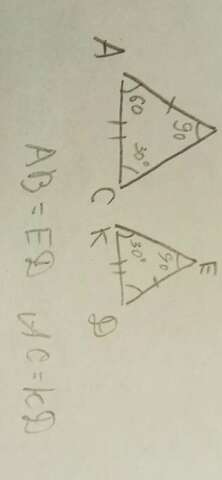 A
60
90
30°
C
K
30°
90
E
D
AB = ED AC = KD